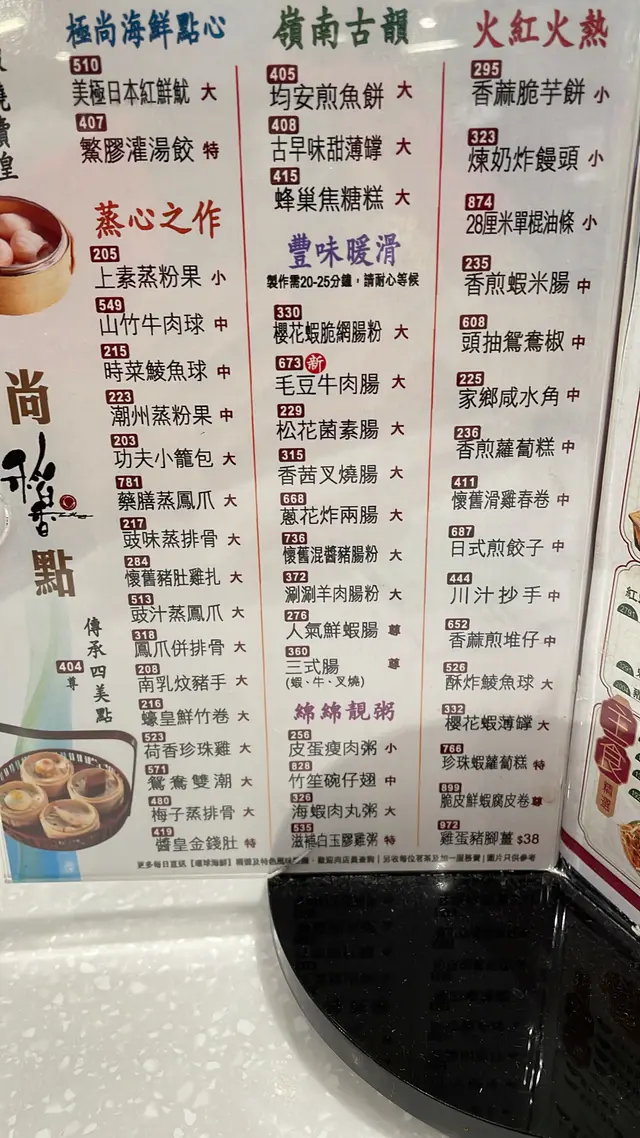 極尚海鮮點心
510
美極日本紅鮮魷 大
407
鰵膠灌湯餃 特
蒸心之作
205
上素蒸粉果 小
549
山竹牛肉球 中
215
時菜鯪魚球 中
223
潮州蒸粉果 中
203
功夫小籠包 大
781
藥膳蒸鳳爪 大
217
豉味蒸排骨 大
284
懷舊豬肚雞扎 大
513
豉汁蒸鳳爪 大
318
鳳爪併排骨 大
208
南乳炆豬手 大
216
蠔皇鮮竹卷 大
523
荷香珍珠雞 大
571
鴛鴦雙潮 大
480
梅子蒸排骨 大
419
醬皇金錢肚 特
尚
點
傳承四美點
404
尊
嶺南古韻
405
均安煎魚餅 大
408
古早味甜薄罉 大
415
蜂巢焦糖糕 大
豐味暖滑
製作需20-25分鐘，請耐心等候
330
櫻花蝦脆網腸粉 大
673 新
毛豆牛肉腸 大
229
松花菌素腸 大
315
香茜叉燒腸 大
668
蔥花炸兩腸 大
736
懷舊混醬豬腸粉 大
372
涮涮羊肉腸粉 大
276
人氣鮮蝦腸 尊
360
三式腸 尊
(蝦、牛、叉燒)
綿綿靚粥
256
皮蛋瘦肉粥 小
828
竹笙碗仔翅 中
326
海蝦肉丸粥 大
535
滋補白玉膠雞粥 特
火紅火熱
295
香蔴脆芋餅 小
323
煉奶炸饅頭 小
874
28厘米單棍油條 小
235
香煎蝦米腸 中
608
頭抽鴛鴦椒 中
225
家鄉咸水角 中
236
香煎蘿蔔糕 中
411
懷舊滑雞春卷 中
687
日式煎餃子 中
444
川汁抄手 中
652
香蔴煎堆仔 中
526
酥炸鯪魚球 大
332
櫻花蝦薄罉 大
766
珍珠蝦蘿蔔糕 特
899
脆皮鮮蝦腐皮卷 尊
972
雞蛋豬腳薑 $38
主食
精選